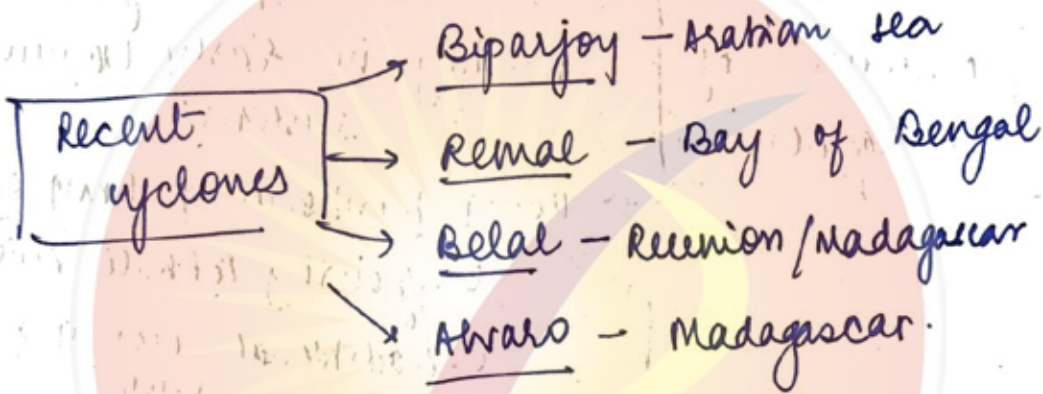 Recent cyclones
Biparjoy – Arabian sea
Remal – Bay of Bengal
Belal – Reunion/Madagascar
Alvaro – Madagascar.